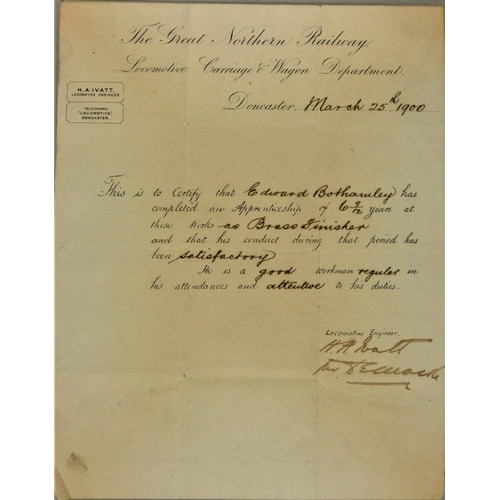 The Great Northern Railway.
Locomotive Carriage & Wagon Department.
H. A. IVATT,
LOCOMOTIVE ENGINEER
TELEGRAMS:
"LOCOMOTIVE"
DONCASTER.
Doncaster, March 25th 1900
This is to Certify that Edward Bothamley has
completed an Apprenticeship of 6 7/12 years at
these Works as Brass Finisher
and that his conduct during that period has
been satisfactory
He is a good workman regular in
his attendances and attentive to his duties.
Locomotive Engineer.
H. A. Ivatt